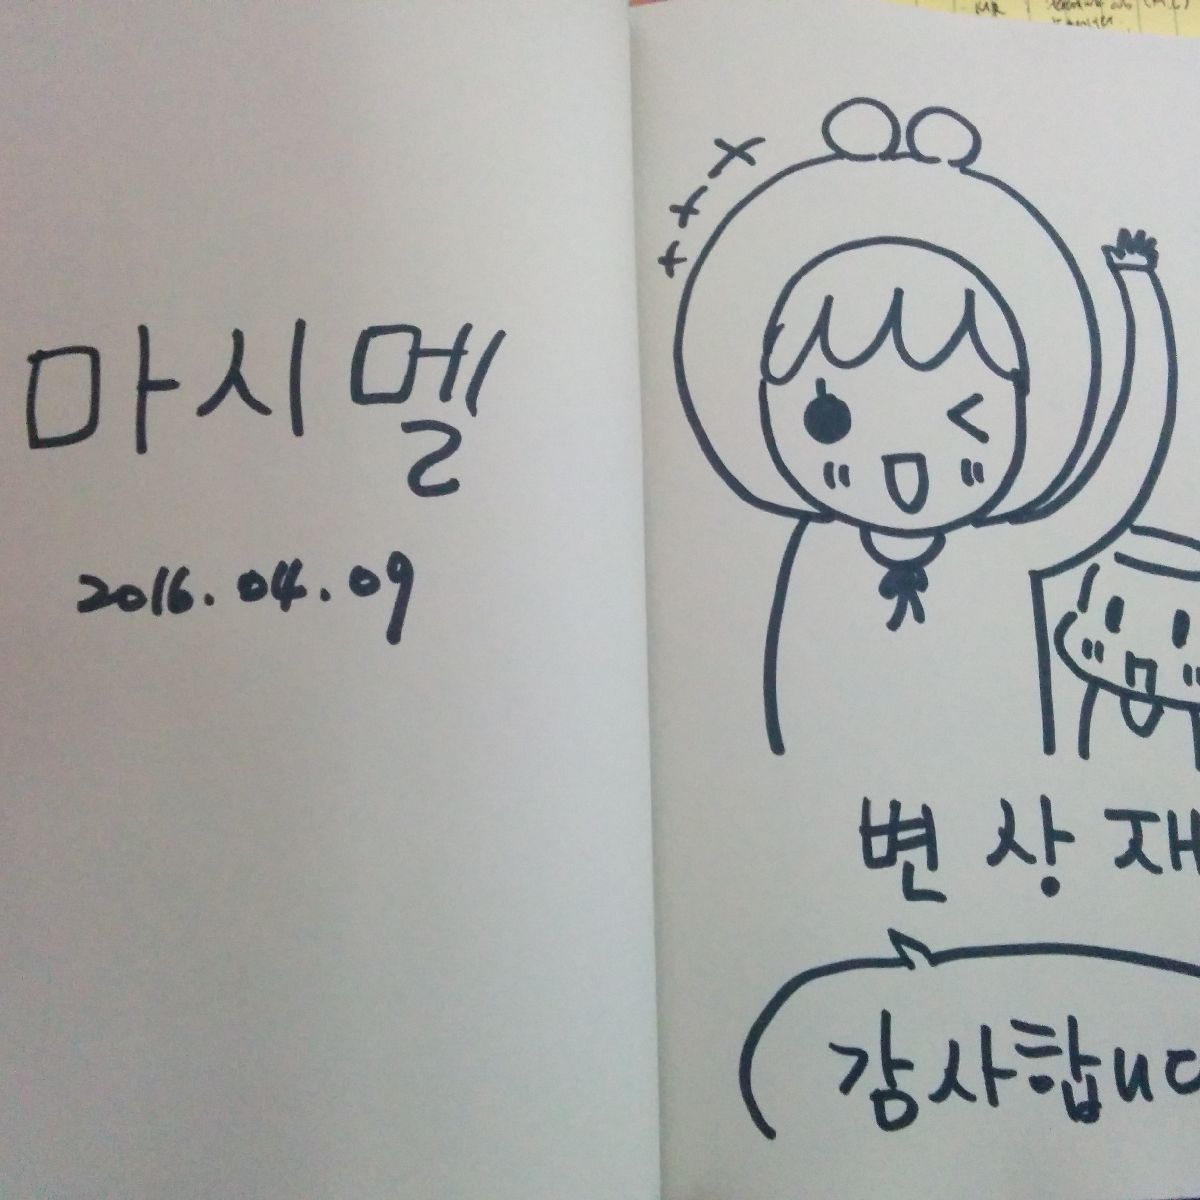 마시멜
2016.04.09
변상재
감사합니